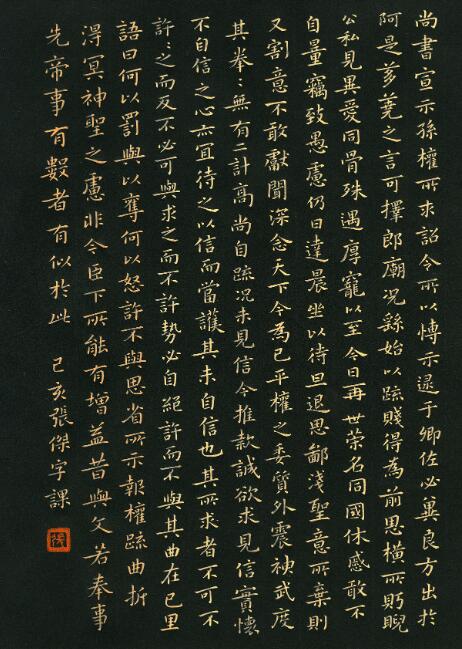 尚書宣示孫權所求詔令所以博示逮于卿佐必冀良方出於
阿是芻蕘之言可擇郎廟況繇始以疏賤得為前恩橫所眄睨
公私見異愛同骨殊遇厚寵以至今日再世榮名同國休慼敢不
自量竊致愚慮仍日達晨坐以待旦退思鄙淺聖意所棄則
又割意不敢獻聞深念天下今為已平權之委質外震神武度
其拳〻無有二計高尚自疏況未見信今推款誠欲求見信實懷
不自信之心亦宜待之以信而當護其未自信也其所求者不可不
許〻之而反不必可與求之而不許勢必自絕許而不與其曲在己里
語曰何以罰與以奪何以怒許不與思省所示報權疏曲折
得冥神聖之慮非今臣下所能有增益昔與文若奉事
先帝事有數者有似於此 己亥張傑字課